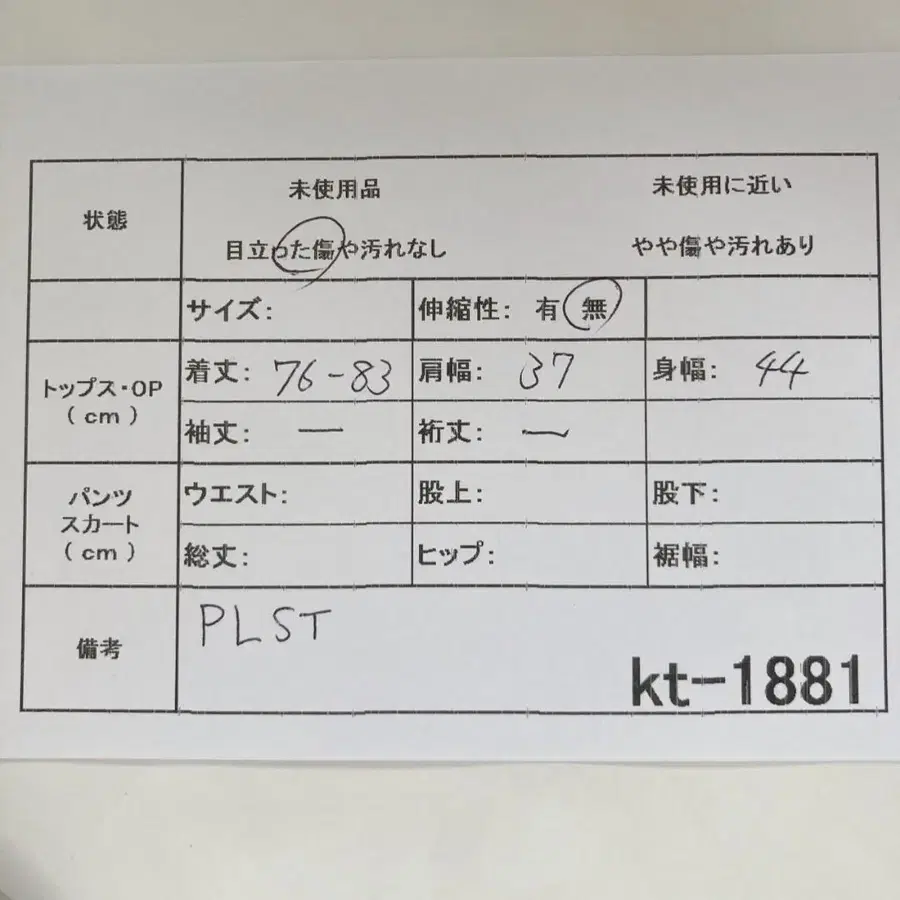 状態
未使用品 未使用に近い
目立った傷や汚れなし やや傷や汚れあり
サイズ: 伸縮性: 有 無
トップス・OP
( cm )
着丈: 76-83 肩幅: 37 身幅: 44
袖丈: — 裄丈: —
パンツ
スカート
( cm )
ウエスト: 股上: 股下:
総丈: ヒップ: 裾幅:
備考
PLST
kt-1881